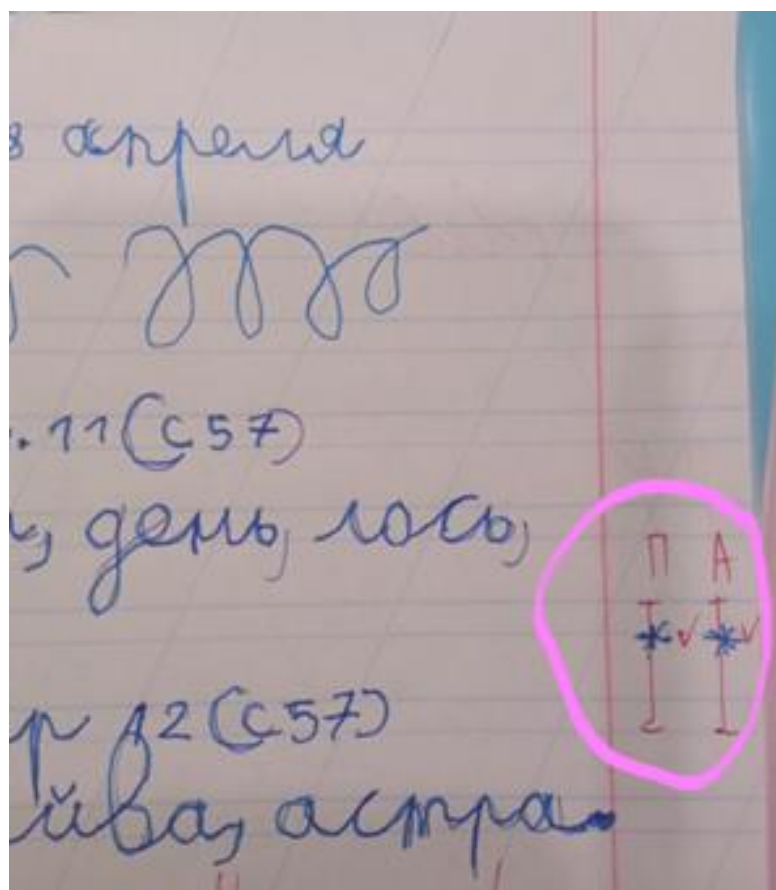 8 апреля
.11 (с 57)
, день, лось,
П А
р 12 (с 57)
йва, астра.